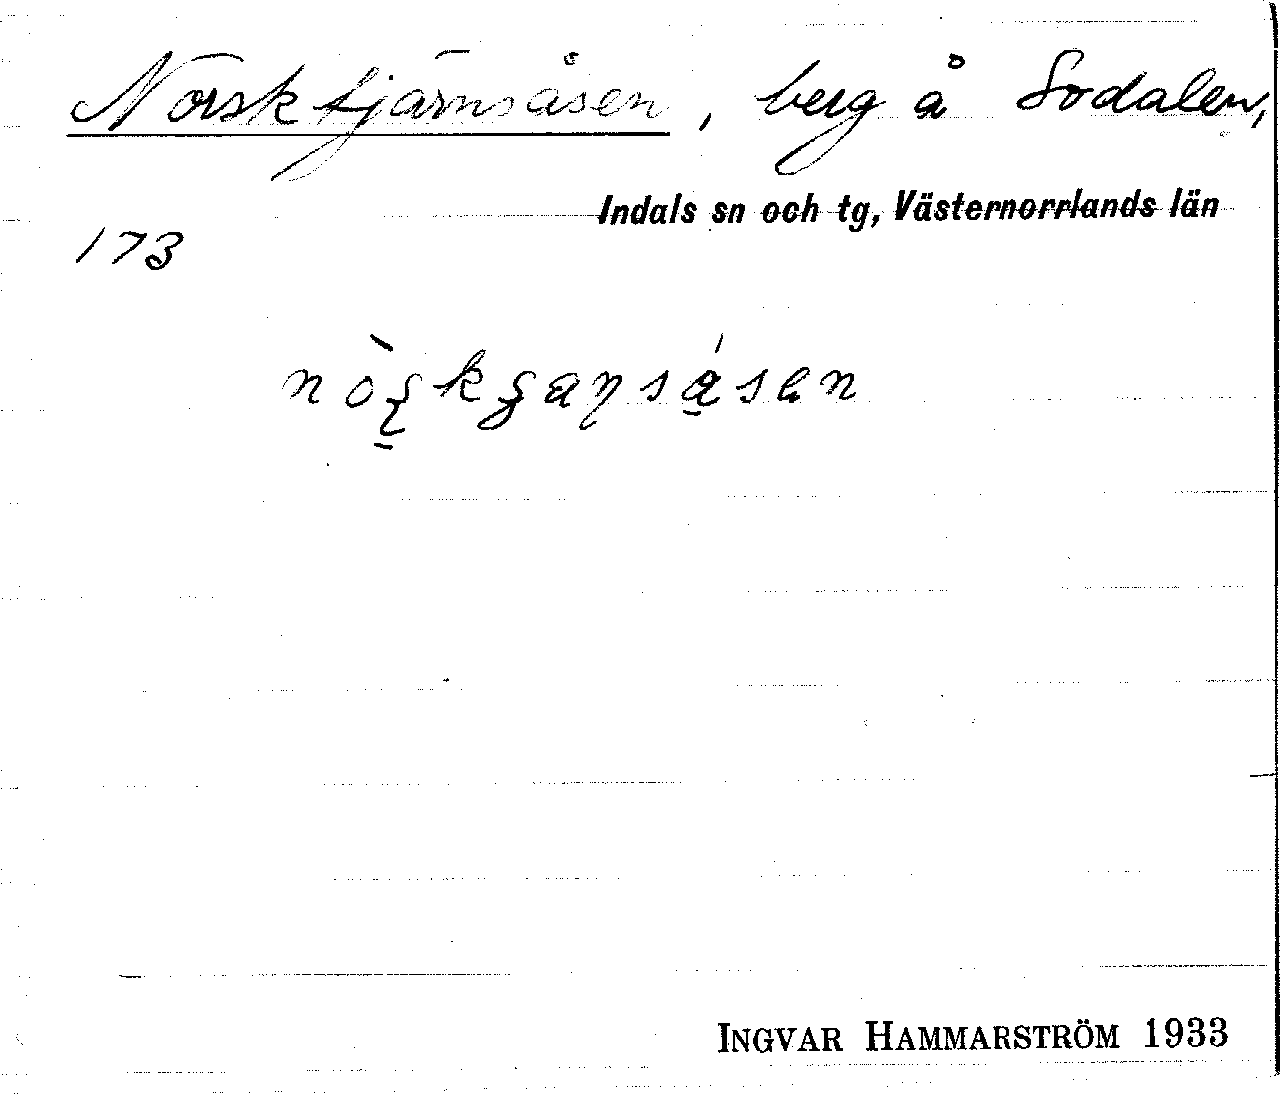 Norsktjärnsåsen, berg å Sodalen,
Indals sn och tg, Västernorrlands län
173
INGVAR HAMMARSTRÖM 1933